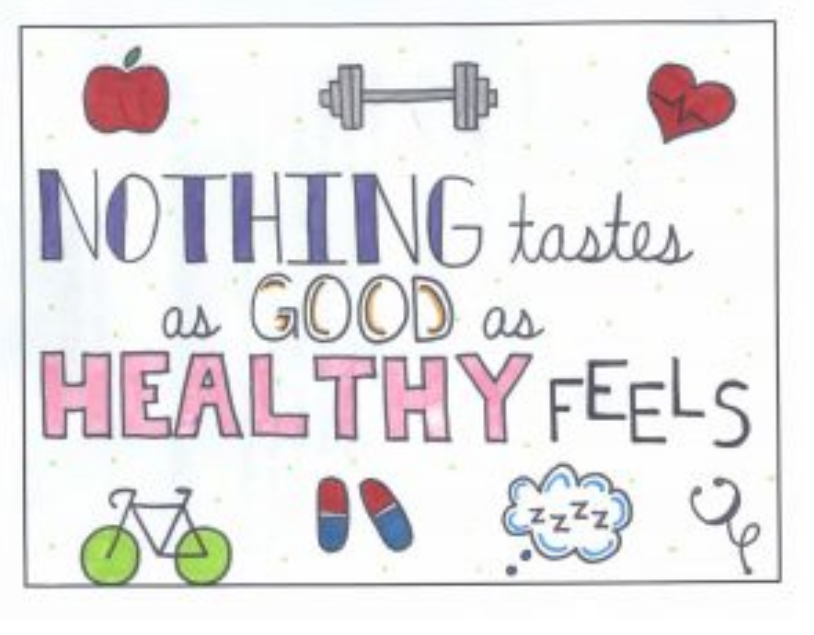 NOTHING tastes
as GOOD as
HEALTHY FEELS
zzzz